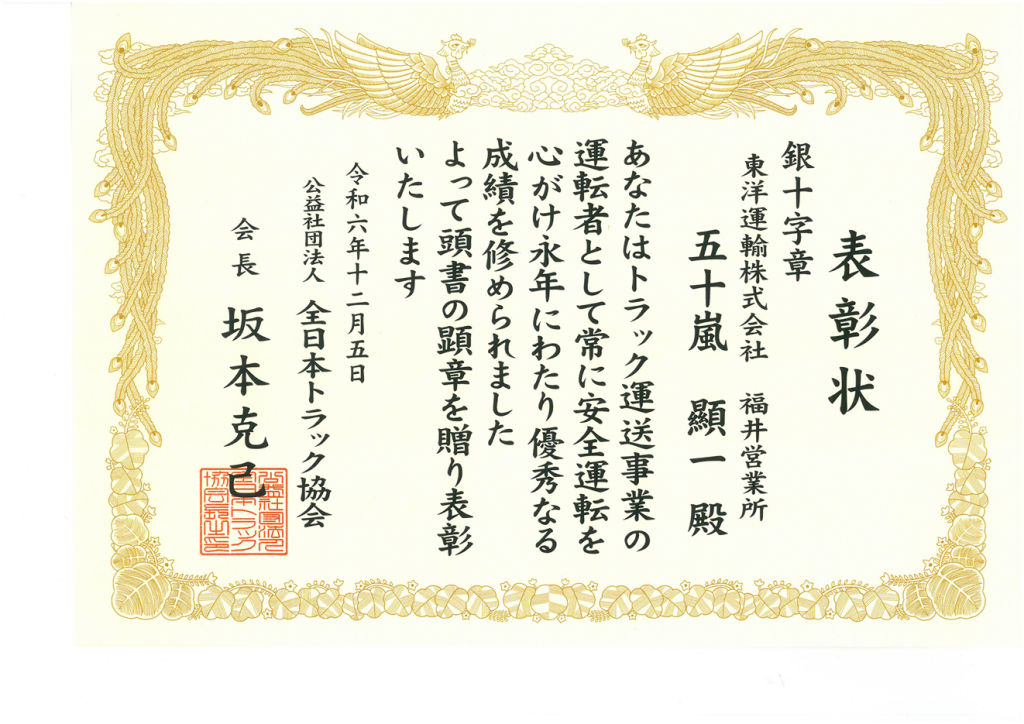 表彰状
銀十字章
東洋運輸株式会社 福井営業所
五十嵐 顯一 殿
あなたはトラック運送事業の
運転者として常に安全運転を
心がけ永年にわたり優秀なる
成績を修められました
よって頭書の顕章を贈り表彰
いたします
令和六年十二月五日
公益社団法人 全日本トラック協会
会長 坂本克己
公益社団法人
全日本トラック
協会長之印